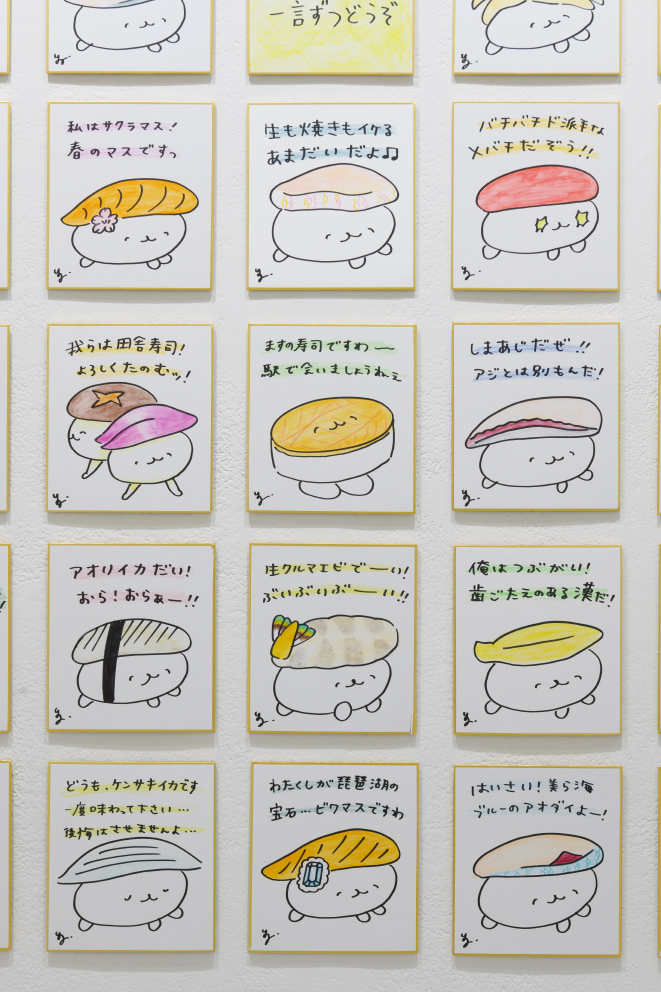 一言ずつどうぞ
私はサクラマス!
春のマスですっ
生も焼きもイケる
あまだいだよ♫
バチバチド派手な
メバチだぞう!!
我らは田舎寿司!
よろしくたのむッ!
ますの寿司ですわー
駅で会いましょうねぇ
しまあじだぜ!!
アジとは別もんだ!
アオリイカだい!
おら!おらぁー!!
生クルマエビでーい!
ぶいぶいぶーい!!
俺はつぶがい!
歯ごたえのある漢だ!
どうも、ケンサキイカです
一度味わって下さい…
後悔はさせませんよ…
わたくしが琵琶湖の
宝石…ビワマスですわ
はいさい!美ら海
ブルーのアオダイよー!